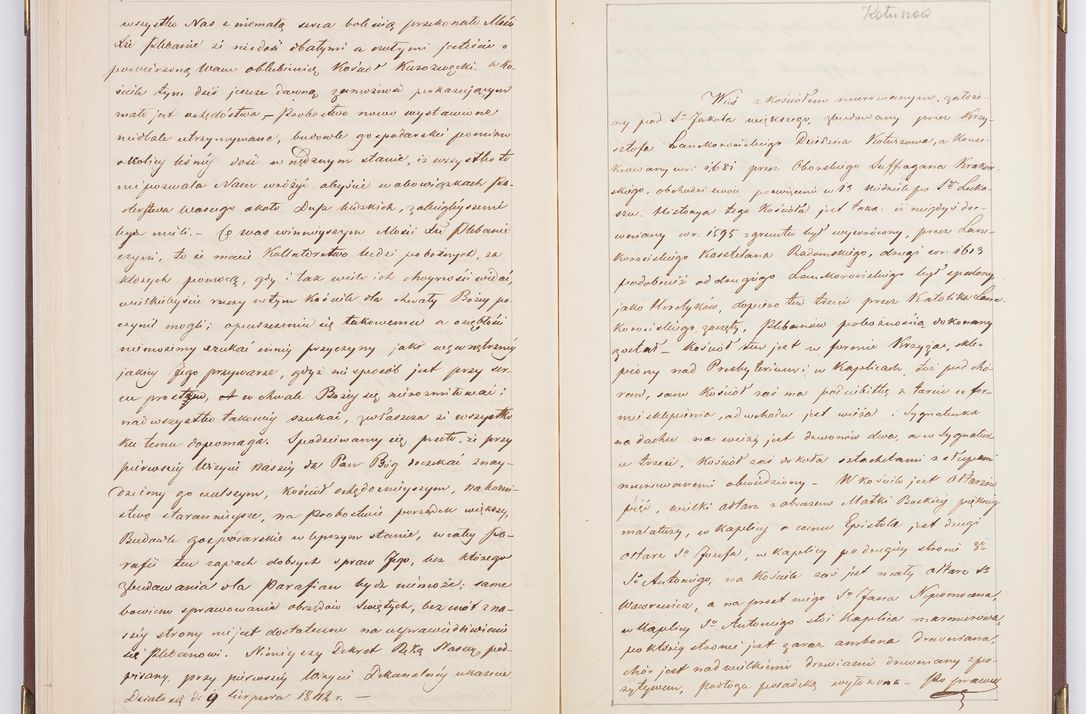 wszystko Nas z niemałą serca boleścią przekonało Mości
Xże Plebanie że niedość dbałymi a czułymi jesteście o
powierzoną Wam oblubienicę Kościół Kurozwęcki. w Ko-
ściele tym dziś jeszcze dawną zamożność pokazującym
mało jest ochędóstwa – Probostwo nowo wystawione
niedbale utrzymywane, budowle gospodarskie pomimo
okolicy leśnej dość w nędznym stanie, iż wszystko to
nie pozwala Nam wróżyć abyście w obowiązkach Pa-
sterstwa Waszego około Dusz ludzkich, zaleglejszemi
być mieli. – Co was winniejszym Mości Xże Plebanie
czyni, to że macie Kollatorstwo ludzi pobożnych, za
których pomocą, gdy i tak wiele ich choyności widać,
wielkiebyście rzeczy w tym Kościele dla chwały Bożey po-
czynić mogli; opuszczeniu się takowemu a oziębłości
niemożemy szukać inney przyczyny jako wewnętrzney
jakiej Jego przywarze, gdyż nie sposób jest przy ser-
cu prostym, w chwale Bożey się nierozmiłować i
nadewszystko takowey szukać, zwłaszcza że wszystko
ku temu dopomaga. Spodziewamy się przeto, że przy
pierwszej Wizycie naszej da Pan Bóg doczekać znay-
dziemy go czulszym, Kościół ochędożniejszym, nabożeń-
stwo staranniejsze, na Probostwie porządek większy,
Budowle gospodarskie w lepszym stanie, w całej Pa-
rafii ten zapach dobrych spraw Jego, bez którego
zbudowania dla Parafian bydź niemoże; same
bowiem sprawowanie obrzędów Świętych, bez cnót zna-
szej strony nie jest dostateczne na usprawiedliwienie
się Plebanowi. Niniejszy Dekret Ręką Naszą pod-
pisany, przy pierwszej Wizycie Dekanalnej ukażecie
Działo się d. 9 Sierpnia 1812 r. —
Koturszów
Wieś z Kościołem murowanym, założo-
ny pod S. Jakóba większego, zbudowany przez Krzy-
sztofa Lanckorońskiego Dziedzica Koturszowa, a Konse-
krowany w r. 1681 przez Oborskiego Suffragana Krakow-
skiego, obchodzi swoie poświęcenie w 13 Niedziele po S. Łuka-
szu. Historya tego Kościoła jest taka: iż niegdyś dre-
wniany w r. 1595 z gruntu był wywrócony, przez Lanc-
korońskiego Kasztelana Radomskiego, drugi w r. 1613
podobnież od drugiego Lanckorońskiego był spalony,
jako Heretyków, dopiero ten trzeci przez Katolika Lanc-
korońskiego, zaczęty, Plebanów pobożnością dokonany
został – Kościół ten jest w formie Krzyża, skle-
piony nad Presbyterium i w Kaplicach, toż pod cho-
rem, sam Kościół zaś ma podsibitkę z tarcic w for-
mie sklepienia, od wchodu jest wieża i Sygnaturka
na dachu na wieży jest dzwonów dwa, a w Sygnatur-
ce trzeci, Kościół zaś do koła sztachetami z słupami
murowanemi obwiedziony – W kościele jest ołtarzów
pięć, wielki ołtarz z obrazem Matki Boskiej piękney
malatury, w Kaplicy a cornu Epistolæ jest drugi
ołtarz S. Józefa, w kaplicy po drugiej stronie 3ci
S. Antoniego, na Kościele zaś jest mały ołtarz S.
Wawrzeńca, a na przeciw niego S. Jana Nepomocena,
w Kaplicy S. Antoniego stoi Kaplica marmurowa,
po któréj stronie jest zaraz ambona drewniana,
chór jest nad wielkiemi drzwiami drewniany z po-
zytywem, podłoga posadzką wyłożona – Po prawey